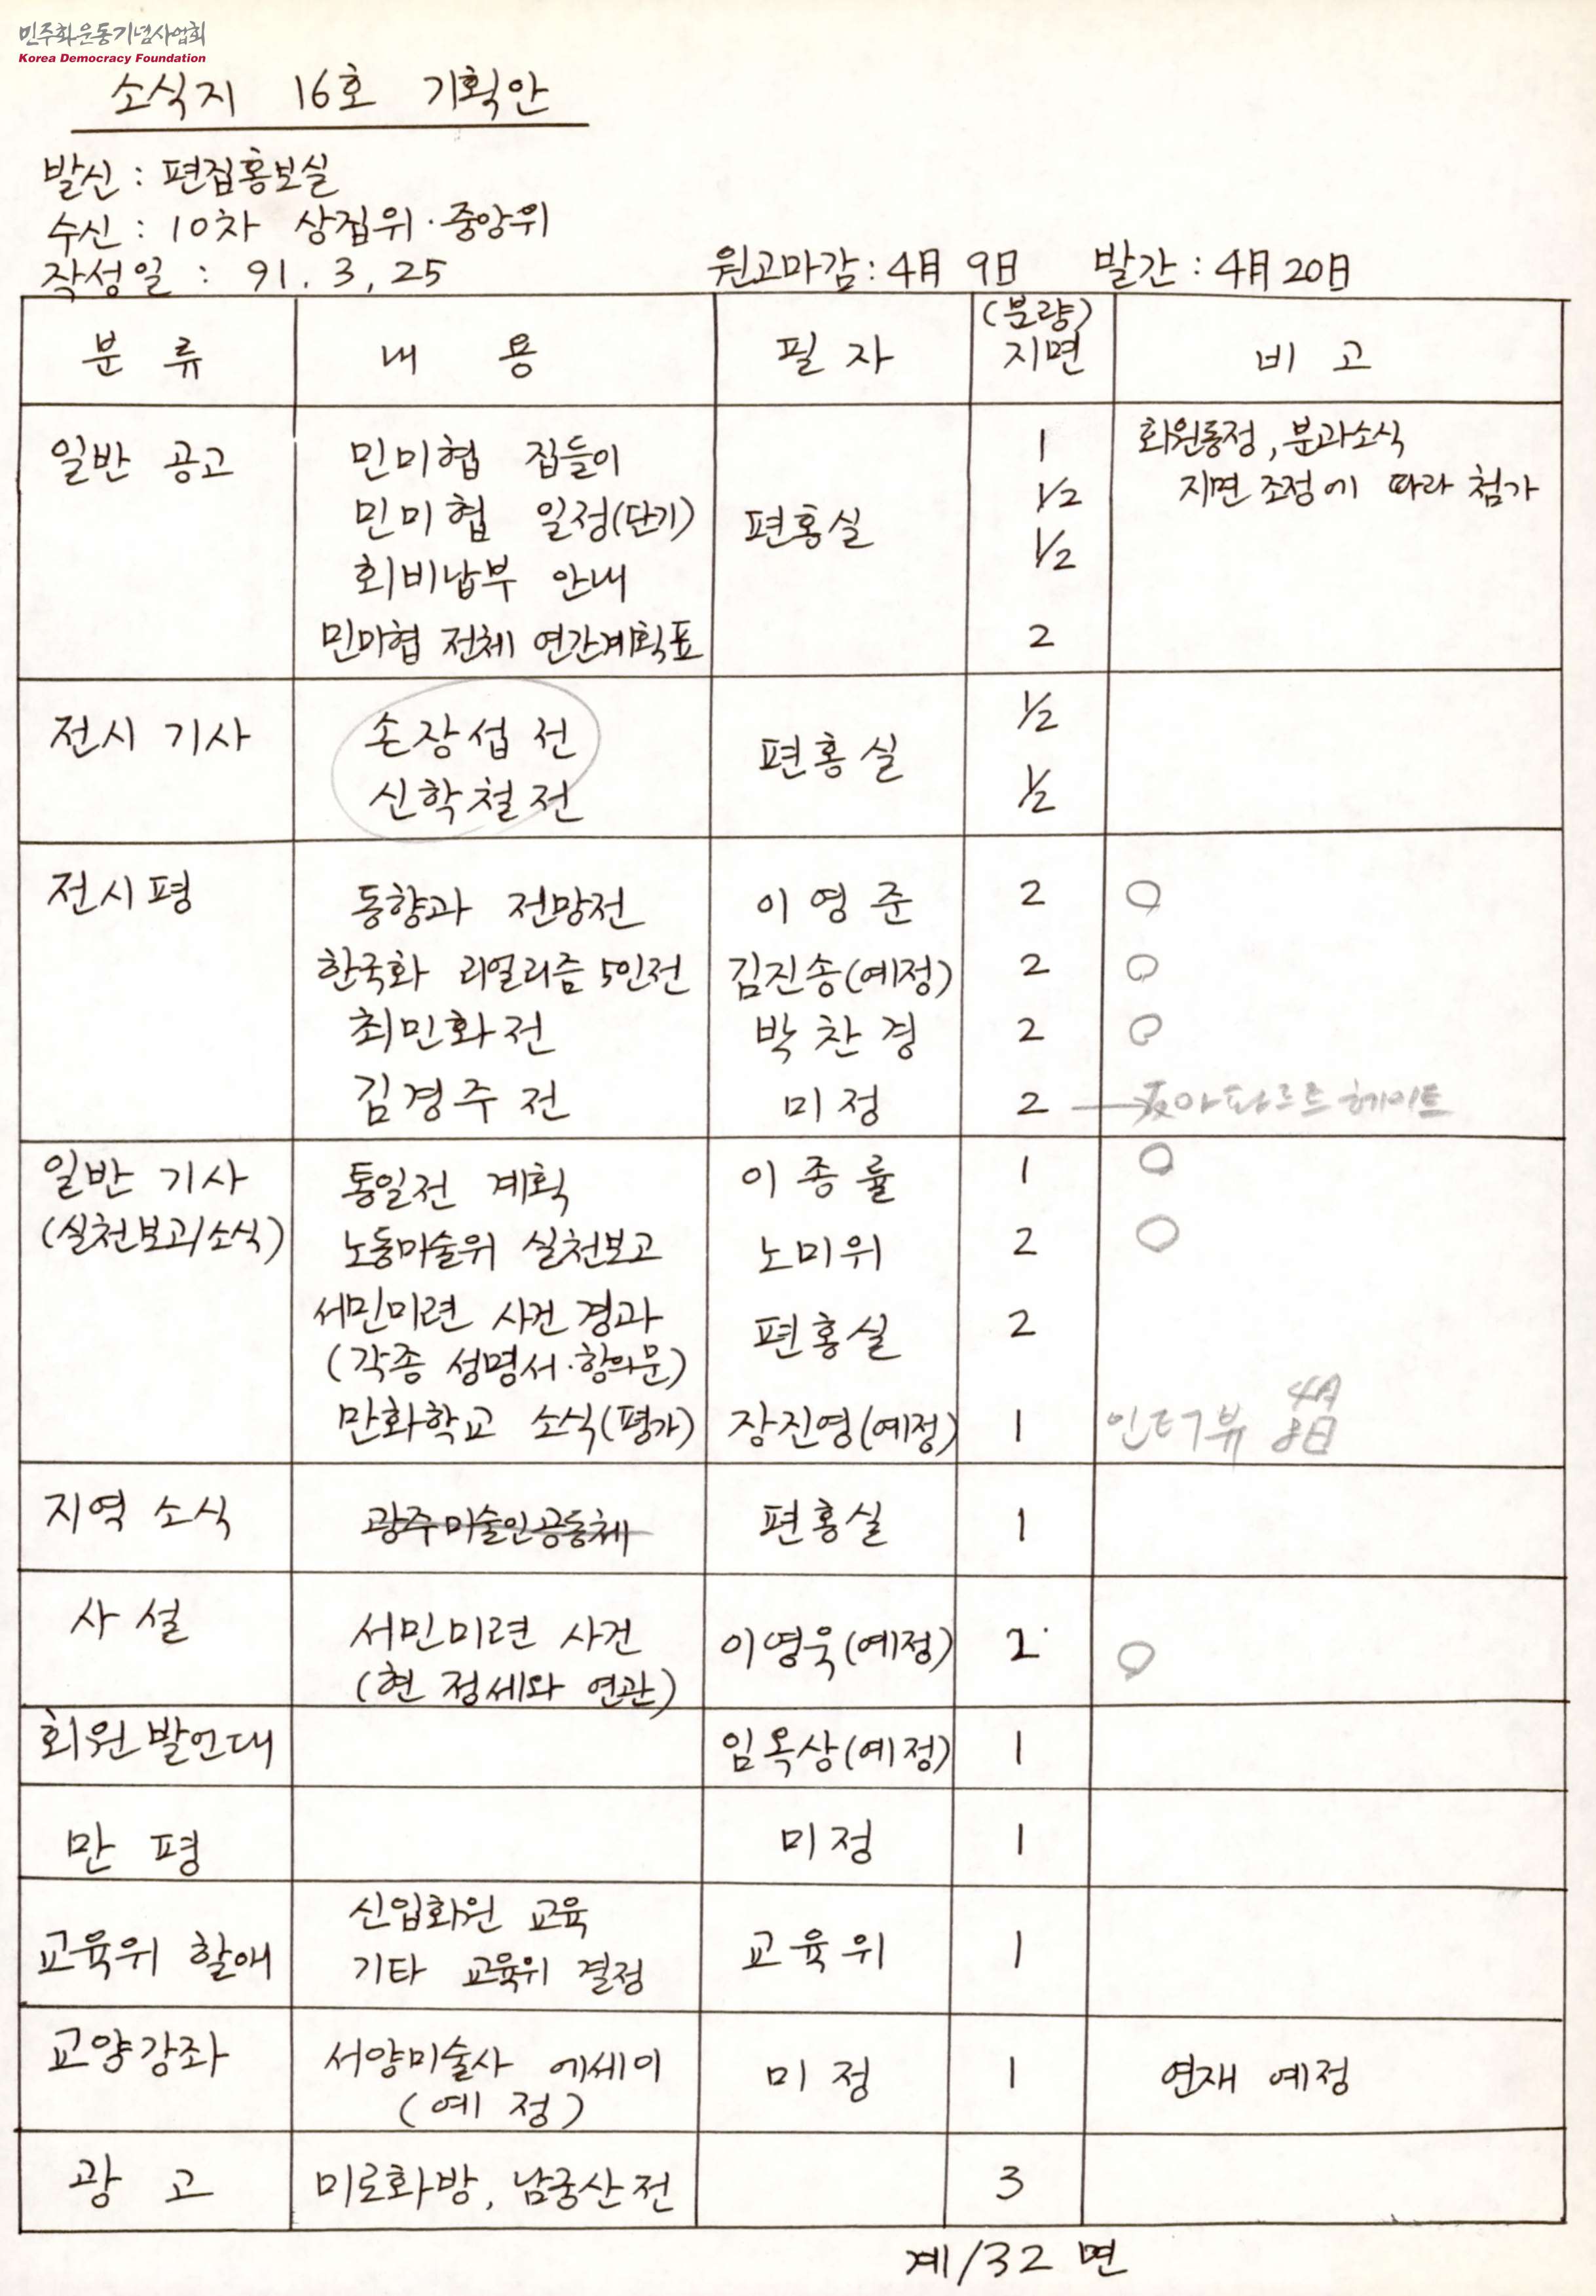 민주화운동기념사업회
Korea Democracy Foundation
소식지 16호 기획안
발신 : 편집홍보실
수신 : 10차 상집위 · 중앙위
작성일 : 91. 3, 25
원고마감 : 4月 9日 발간 : 4月 20日
분 류 내 용 필 자 (분량) 지면 비 고
일반 공고 민미협 집들이 1 회원동정, 분과소식
민미협 일정(단기) 편홍실 1/2 지면 조정에 따라 첨가
회비납부 안내 1/2
민미협 전체 연간계획표 2
전시 기사 손장섭 전 편홍실 1/2
신학철 전 1/2
전시평 동향과 전망전 이영준 2 ○
한국화 리얼리즘 5인전 김진송(예정) 2 ○
최민화전 박찬경 2 ○
김경주 전 미정 2 아파르트헤이트
일반 기사 통일전 계획 이종률 1 ○
(실천보고/소식) 노동미술위 실천보고 노미위 2 ○
서민미련 사건 경과 편홍실 2
(각종 성명서·항의문)
만화학교 소식(평가) 장진영(예정) 1 인터뷰 4月 8日
지역 소식 광주미술인공동체 편홍실 1
사 설 서민미련 사건 이영욱(예정) 2 ○
(현 정세와 연관)
회원발언대 임옥상(예정) 1
만 평 미정 1
교육위 할애 신입회원 교육 교육위 1
기타 교육위 결정
교양강좌 서양미술사 에세이 미정 1 연재 예정
(예 정)
광 고 미로화방, 남궁산전 3
계/32 면